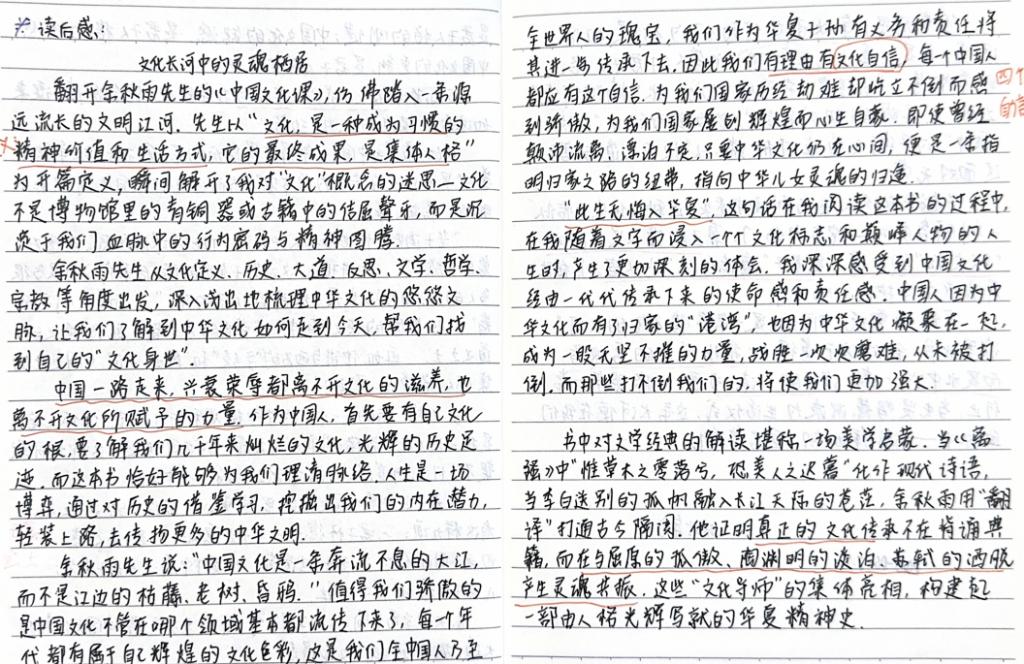 ※ 读后感：
文化长河中的灵魂栖居
翻开余秋雨先生的《中国文化课》，仿佛踏入一条源
远流长的文明江河。先生以“文化，是一种成为习惯的
精神价值和生活方式，它的最终成果，是集体人格”
为开篇定义，瞬间解开了我对“文化”概念的迷思—文化
不是博物馆里的青铜器或古籍中的佶屈聱牙，而是沉
淀于我们血脉中的行为密码与精神图腾。
余秋雨先生从文化定义、历史、大道、反思、文学、哲学、
宗教等角度出发，深入浅出地梳理中华文化的悠悠文
脉，让我们了解到中华文化如何走到今天，帮我们找
到自己的“文化身世”。
中国一路走来，兴衰荣辱都离不开文化的滋养，也
离不开文化所赋予的力量。作为中国人，首先要有自己文化
的根，要了解我们几千年来灿烂的文化，光辉的历史足
迹。而这本书恰好能够为我们理清脉络。人生是一场
博弈，通过对历史的借鉴学习，挖掘出我们的内在潜力，
轻装上路，去传扬更多的中华文明。
余秋雨先生说：“中国文化是一条奔流不息的大江，
而不是江边的枯藤、老树、昏鸦。”值得我们骄傲的
是中国文化不管在哪个领域基本都流传下来了，每一个年
代都有属于自己辉煌的文化色彩，这是我们全中国人乃至
全世界人的瑰宝，我们作为华夏子孙有义务和责任将
其进一步传承下去，因此我们有理由有文化自信，每一个中国人
都应有这个自信。为我们国家历经劫难却屹立不倒而感
四个
自信
到骄傲，为我们国家屡创辉煌而心生自豪。即使曾经
颠沛流离，漂泊不定，只要中华文化仍在心间，便是一条指
明归家之路的纽带，指向中华儿女灵魂的归途。
“此生无悔入华夏”，这句话在我阅读这本书的过程中，
在我随着文字而浸入一个个文化标志和巅峰人物的人
生时，产生了更加深刻的体会。我深深感受到中国文化
经由一代代传承下来的使命感和责任感。中国人因为中
华文化而有了归家的“港湾”，也因为中华文化凝聚在一起，
成为一股无坚不摧的力量，战胜一次次磨难，从未被打
倒，而那些打不倒我们的，将使我们更加强大。
书中对文学经典的解读堪称一场美学启蒙。当《离
骚》中“惟草木之零落兮，恐美人之迟暮”化作现代诗语，
当李白送别的孤帆融入长江天际的苍茫，余秋雨用“翻
译”打通古今隔阂。他证明真正的文化传承不在背诵典
籍，而在与屈原的孤傲、陶渊明的淡泊、苏轼的洒脱
产生灵魂共振。这些“文化导师”的集体亮相，构建起
一部由人格光辉写就的华夏精神史。